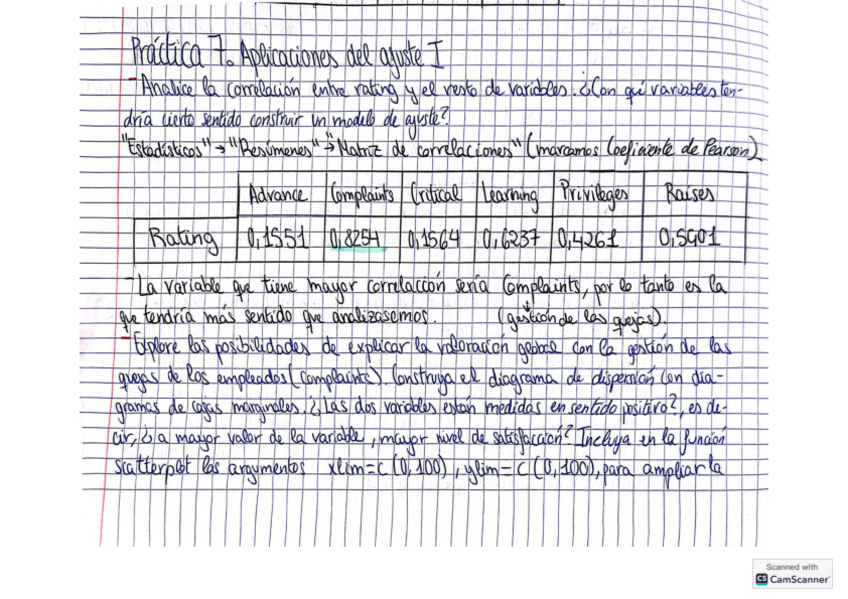 Práctica 7. Aplicaciones del ajuste I
- Analice la correlación entre rating y el resto de variables. ¿Con qué variables ten-
dría cierto sentido construir un modelo de ajuste?
"Estadísticos" → "Resúmenes" → "Matriz de correlaciones" (marcamos Coeficiente de Pearson)
Advance Complaints Critical Learning Privileges Raises
Rating 0,1551 0,8254 0,1564 0,6237 0,4261 0,5901
- La variable que tiene mayor correlacción sería Complaints, por lo tanto es la
que tendría más sentido que analizasemos. (gestión de las quejas).
- Explore las posibilidades de explicar la valoración global con la gestión de las
quejas de los empleados (complaints). Construya el diagrama de dispersión con dia-
gramas de cajas marginales. ¿Las dos variables están medidas en sentido positivo?, es de-
cir, ¿a mayor valor de la variable, mayor nivel de satisfacción? Incluya en la función
scatterplot los argumentos xlim=c(0,100), ylim=c(0,100), para ampliar la
Scanned with
CS CamScanner